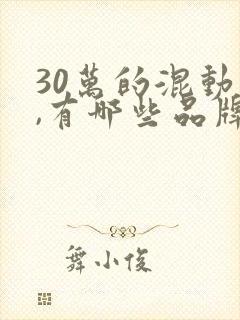 30萬的混動
,有哪些品牌
舞小俊